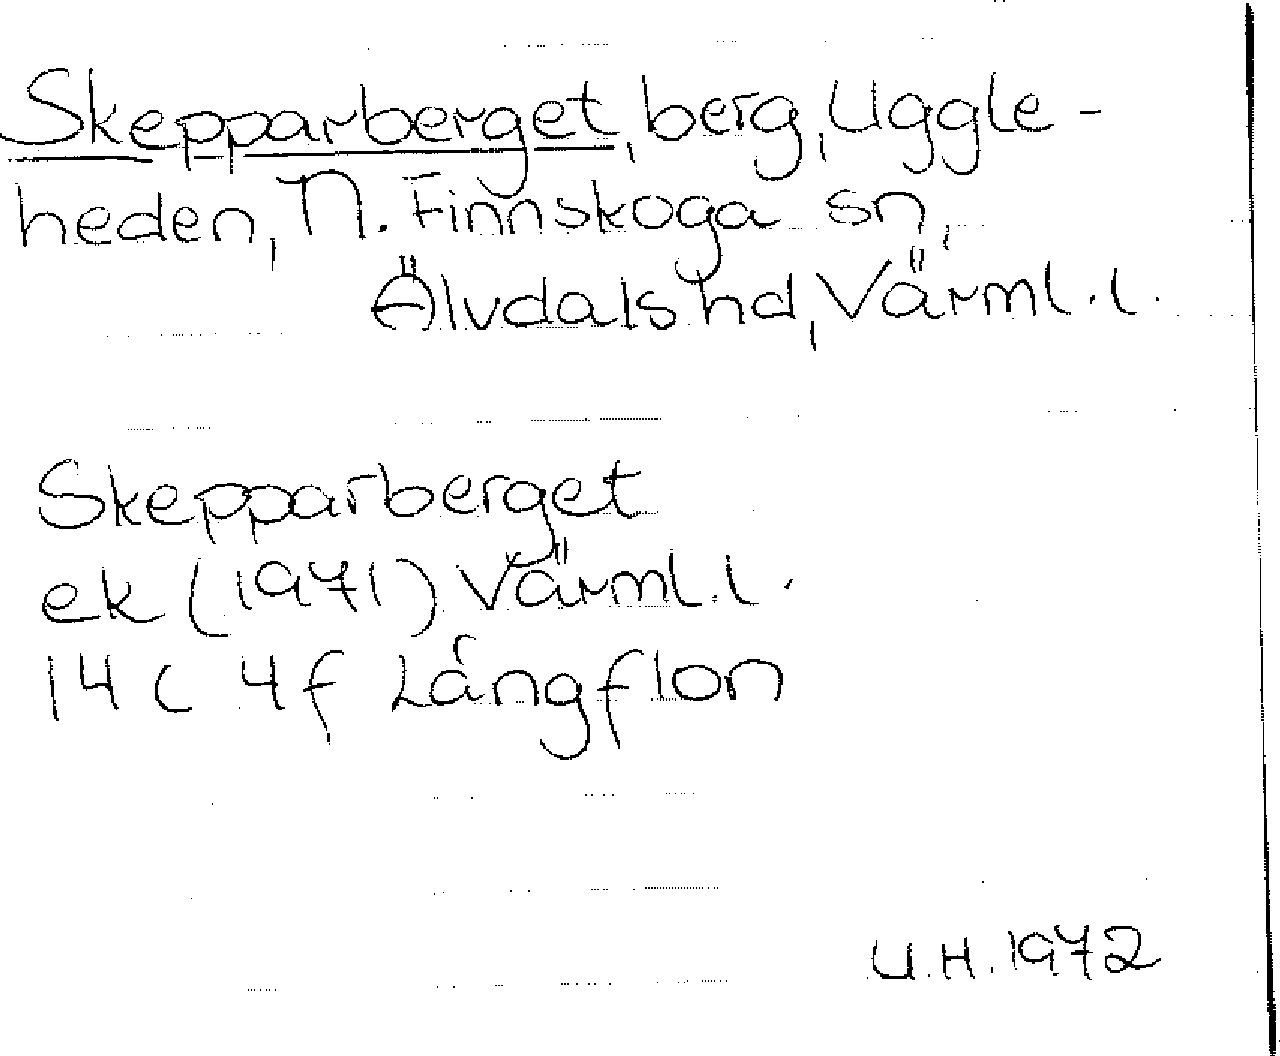 Skepparberget, berg, Uggle-
heden, N. Finnskoga sn,
Älvdals hd, Värml. l.
Skepparberget
ek (1971) Värml. l.
14 C 4f Långflon
U.H. 1972